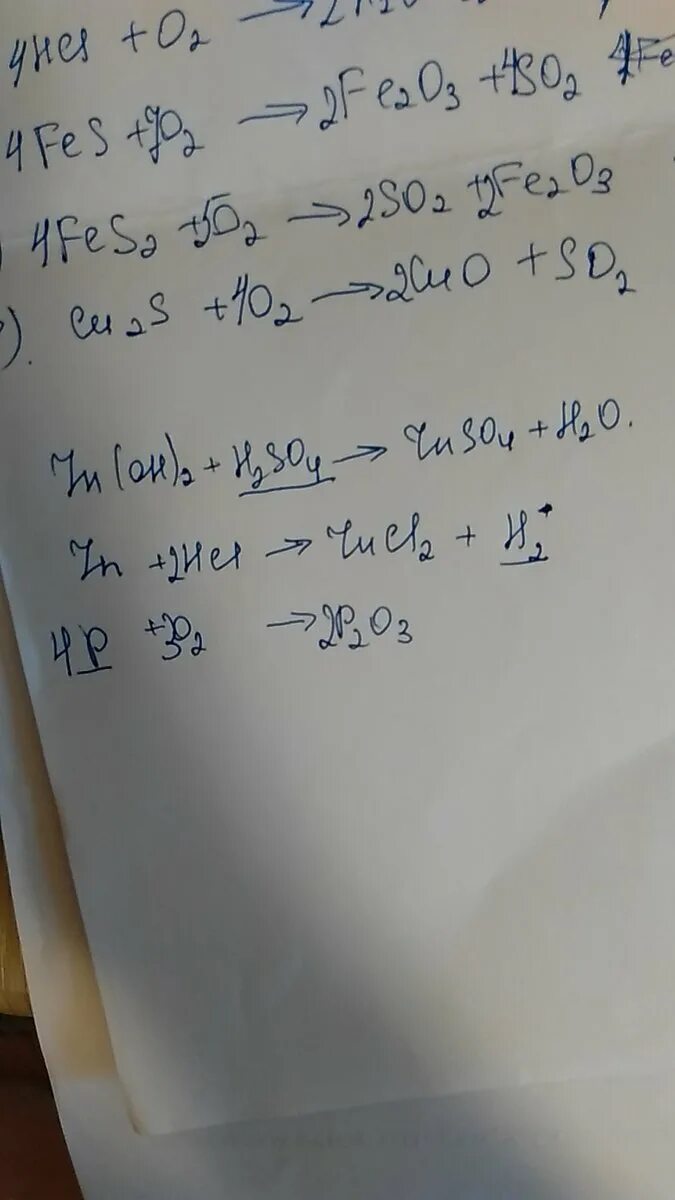 4HCl + O2 → 2H2O
4FeS + 7O2 → 2Fe2O3 + 4SO2 4Fe
4FeS2 + 5O2 → 2SO2 + 2Fe2O3
). Cu2S + 4O2 → 2CuO + SO2
Zn(OH)2 + H2SO4 → ZnSO4 + H2O.
Zn + 2HCl → ZnCl2 + H2
4P + 3O2 → 2P2O3